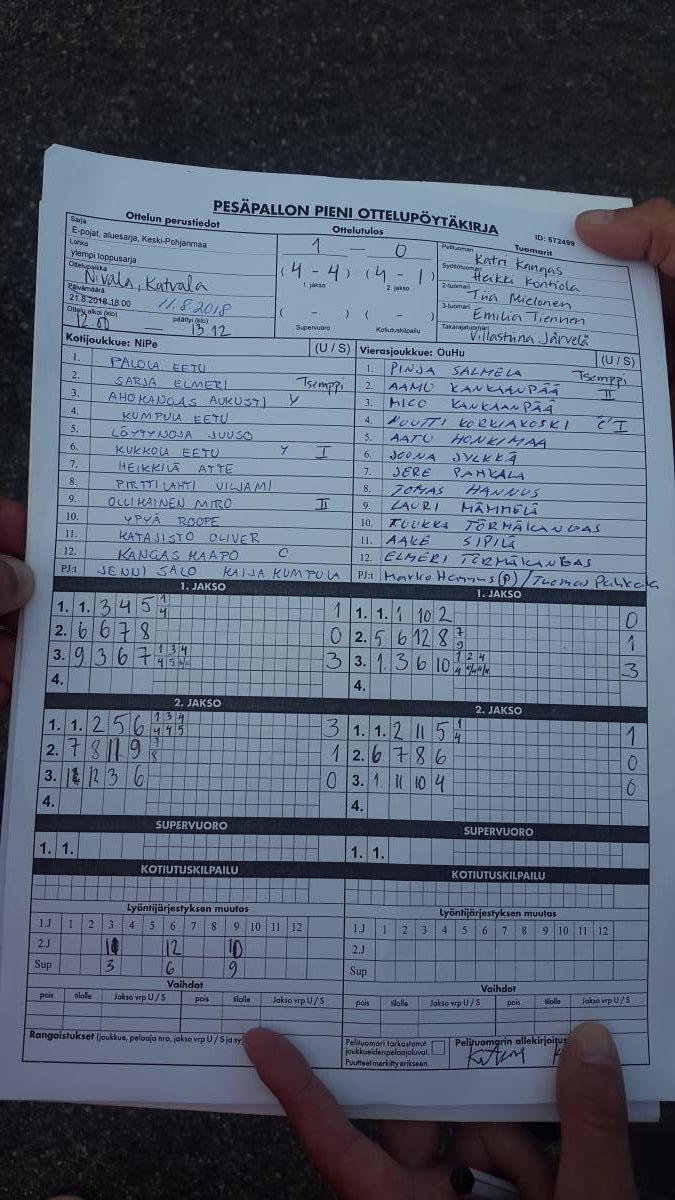 PESÄPALLON PIENI OTTELUPÖYTÄKIRJA
ID: 572499
Ottelun perustiedot
Sarja
E-pojat, aluesarja, Keski-Pohjanmaa
Lohko
ylempi loppusarja
Ottelupaikka
Nivala, Katvala
Päivämäärä
21.8.2018 18:00 11.8.2018
Ottelu alkoi (klo) päättyi (klo)
12.00 — 13 12
Ottelutulos
1 — 0
(4 - 4) (4 - 1)
1. jakso 2. jakso
( - ) ( - )
Supervuoro Kotiutuskilpailu
Tuomarit
Pelituomari
Katri Kangas
Syöttötuomari
Heikki Kontiola
2-tuomari
Tiia Mielonen
3-tuomari
Emilia Tiennen
Takarajatuomari
Villastiina Järvelä
Kotijoukkue: NiPe (U / S)
1. PALOLA EETU
2. SARJA ELMERI Tsemppi
3. AHOKANGAS AUKUSTI Y
4. KUMPULA EETU
5. LÖYTYNOJA JUUSO
6. KUKKOLA EETU Y I
7. HEIKKILÄ ATTE
8. PIRTTILAHTI VILJAMI
9. OLLIKAINEN MIRO II
10. YPYÄ ROOPE
11. KATAJISTO OLIVER
12. KANGAS KAAPO C
PJ:t JENNI SALO KAIJA KUMPULA
Vierasjoukkue: OuHu (U / S)
1. PINJA SALMELA Tsemppi
2. AAMU KANKAANPÄÄ II
3. MICO KANKAANPÄÄ
4. NUUTTI KORKIAKOSKI C I
5. AATU HONKIMAA
6. JOONA JYLKKÄ
7. JERE PAHKALA
8. JOMAS HANNUS
9. LAURI MÄMMELÄ
10. TUUKKA TÖRMÄKANGAS
11. AAKE SIPILÄ
12. ELMERI TÖRMÄKANGAS
PJ:t Marko Hannus (P) / Tuomas Pahkala
1. JAKSO
1. 1. 3 4 5 1 4 1
2. 6 6 7 8 0
3. 9 3 6 7 1 3 4 4 5 3
4.
1. JAKSO
1. 1. 1 10 2 0
2. 5 6 12 8 7 9 1
3. 1. 3 6 10 1 2 4 3
4.
2. JAKSO
1. 1. 2 5 6 1 3 4 4 4 5 3
2. 7 8 11 9 7 8 1
3. 12 3 6 0
4.
2. JAKSO
1. 1. 2 11 5 1 4 1
2. 6 7 8 6 0
3. 1. 11 10 4 0
4.
SUPERVUORO
1. 1.
SUPERVUORO
1. 1.
KOTIUTUSKILPAILU
KOTIUTUSKILPAILU
Lyöntijärjestyksen muutos
1.J 1 2 3 4 5 6 7 8 9 10 11 12
2.J 12 10
Sup 3 6 9
Lyöntijärjestyksen muutos
1.J 1 2 3 4 5 6 7 8 9 10 11 12
2.J
Sup
Vaihdot
pois tilalle Jakso vrp U / S pois tilalle Jakso vrp U / S
Vaihdot
pois tilalle Jakso vrp U / S pois tilalle Jakso vrp U / S
Rangaistukset (joukkue, pelaaja nro, jakso vrp U / S ja sy
Pelituomari tarkastanut
joukkueiden pelaajaluvat.
Puutteet merkitty erikseen.
Pelituomarin allekirjoitus
Katri K